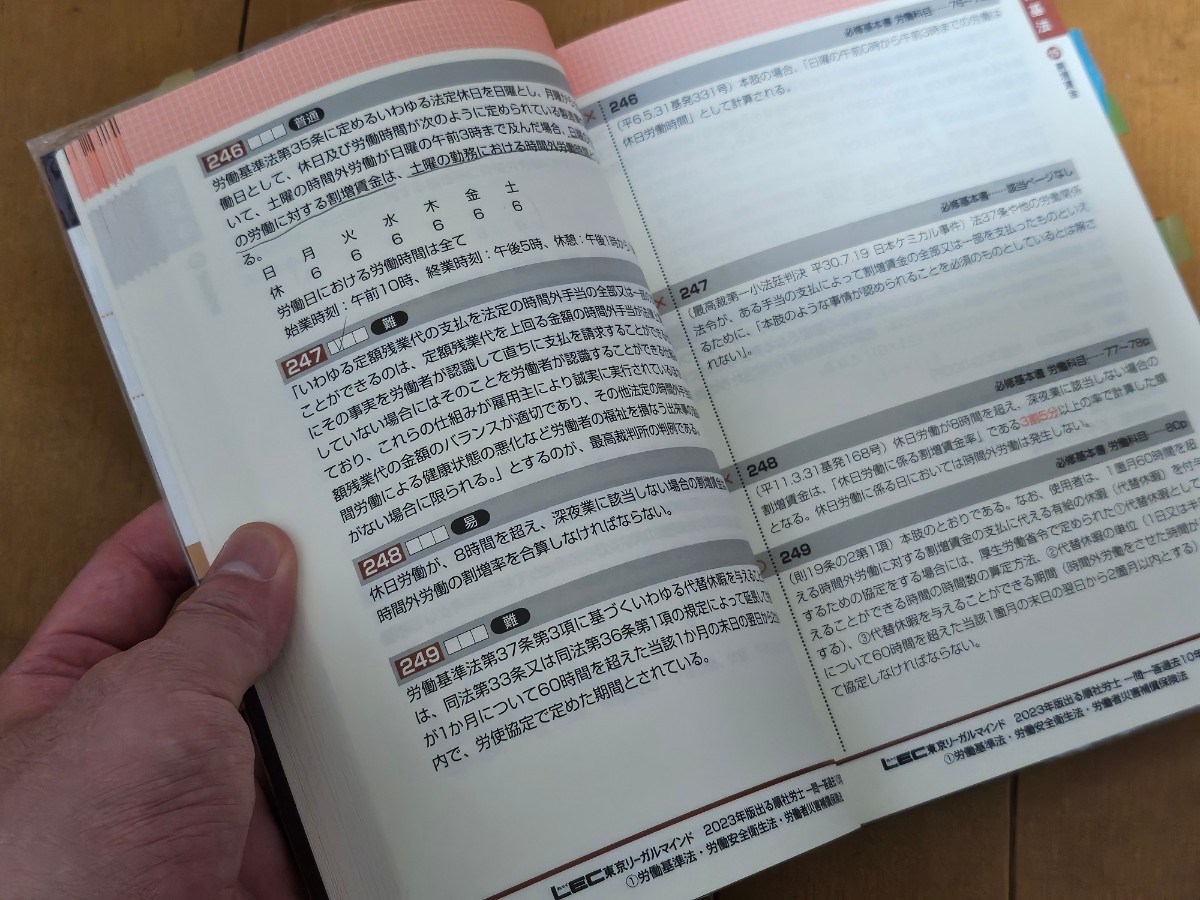 246 普通
労働基準法第35条に定めるいわゆる法定休日を日曜とし、月曜から
働日として、休日及び労働時間が次のように定められている製造業
いて、土曜の時間外労働が日曜の午前3時まで及んだ場合、日曜の
の労働に対する割増賃金は、土曜の勤務における時間外労働時間
る。
日 月 火 水 木 金 土
休 6 6 6 6 6 6
労働日における労働時間は全て
始業時刻:午前10時、終業時刻:午後5時、休憩:午後1時から
247 難
「いわゆる定額残業代の支払を法定の時間外手当の全部又は一部の
ことができるのは、定額残業代を上回る金額の時間外手当が法律上
にその事実を労働者が認識して直ちに支払を請求することができる
していない場合にはそのことを労働者が認識することができる仕組
ており、これらの仕組みが雇用主により誠実に実行されているほか
額残業代の金額のバランスが適切であり、その他法定の時間外手当
間労働による健康状態の悪化など労働者の福祉を損なう出来事の
がない場合に限られる。」とするのが、最高裁判所の判例である。
248 易
休日労働が、8時間を超え、深夜業に該当しない場合の割増賃金
時間外労働の割増率を合算しなければならない。
249 難
労働基準法第37条第3項に基づくいわゆる代替休暇を与えること
は、同法第33条又は同法第36条第1項の規定によって延長して労
が1か月について60時間を超えた当該1か月の末日の翌日から2か
内で、労使協定で定めた期間とされている。
LEC東京リーガルマインド 2023年版出る順社労士 一問一答過去10年
①労働基準法・労働安全衛生法・労働者災害補償保険法
必修基本書 労働科目
246
(平6.5.31基発331号)本肢の場合、「日曜の午前0時から午前3時までの労働は
休日労働時間」として計算される。
必修基本書 該当ページなし
247
(最高裁第一小法廷判決 平30.7.19 日本ケミカル事件)法37条や他の労働関係
法令が、ある手当の支払によって割増賃金の全部又は一部を支払ったものといえ
るために、「本肢のような事情が認められることを必須のものとしているとは解さ
れない」。
必修基本書 労働科目 77~78p
248
(平11.3.31基発168号)休日労働が8時間を超え、深夜業に該当しない場合の
割増賃金は、「休日労働に係る割増賃金率」である3割5分以上の率で計算した額
となる。休日労働に係る日においては時間外労働は発生しない。
必修基本書 労働科目 80p
249
(則19条の2第1項)本肢のとおりである。なお、使用者は、1箇月60時間を超
える時間外労働に対する割増賃金の支払に代える有給の休暇(代替休暇)を付与
するための協定をする場合には、厚生労働省令で定められた①代替休暇として
えることができる時間の時間数の算定方法、②代替休暇の単位(1日又は半
する)、③代替休暇を与えることができる期間(時間外労働をさせた時間が
について60時間を超えた当該1箇月の末日の翌日から2箇月以内とする)
て協定しなければならない。
LEC東京リーガルマインド 2023年版出る順社労士 一問一答過去10年
①労働基準法・労働安全衛生法・労働者災害補償保険法